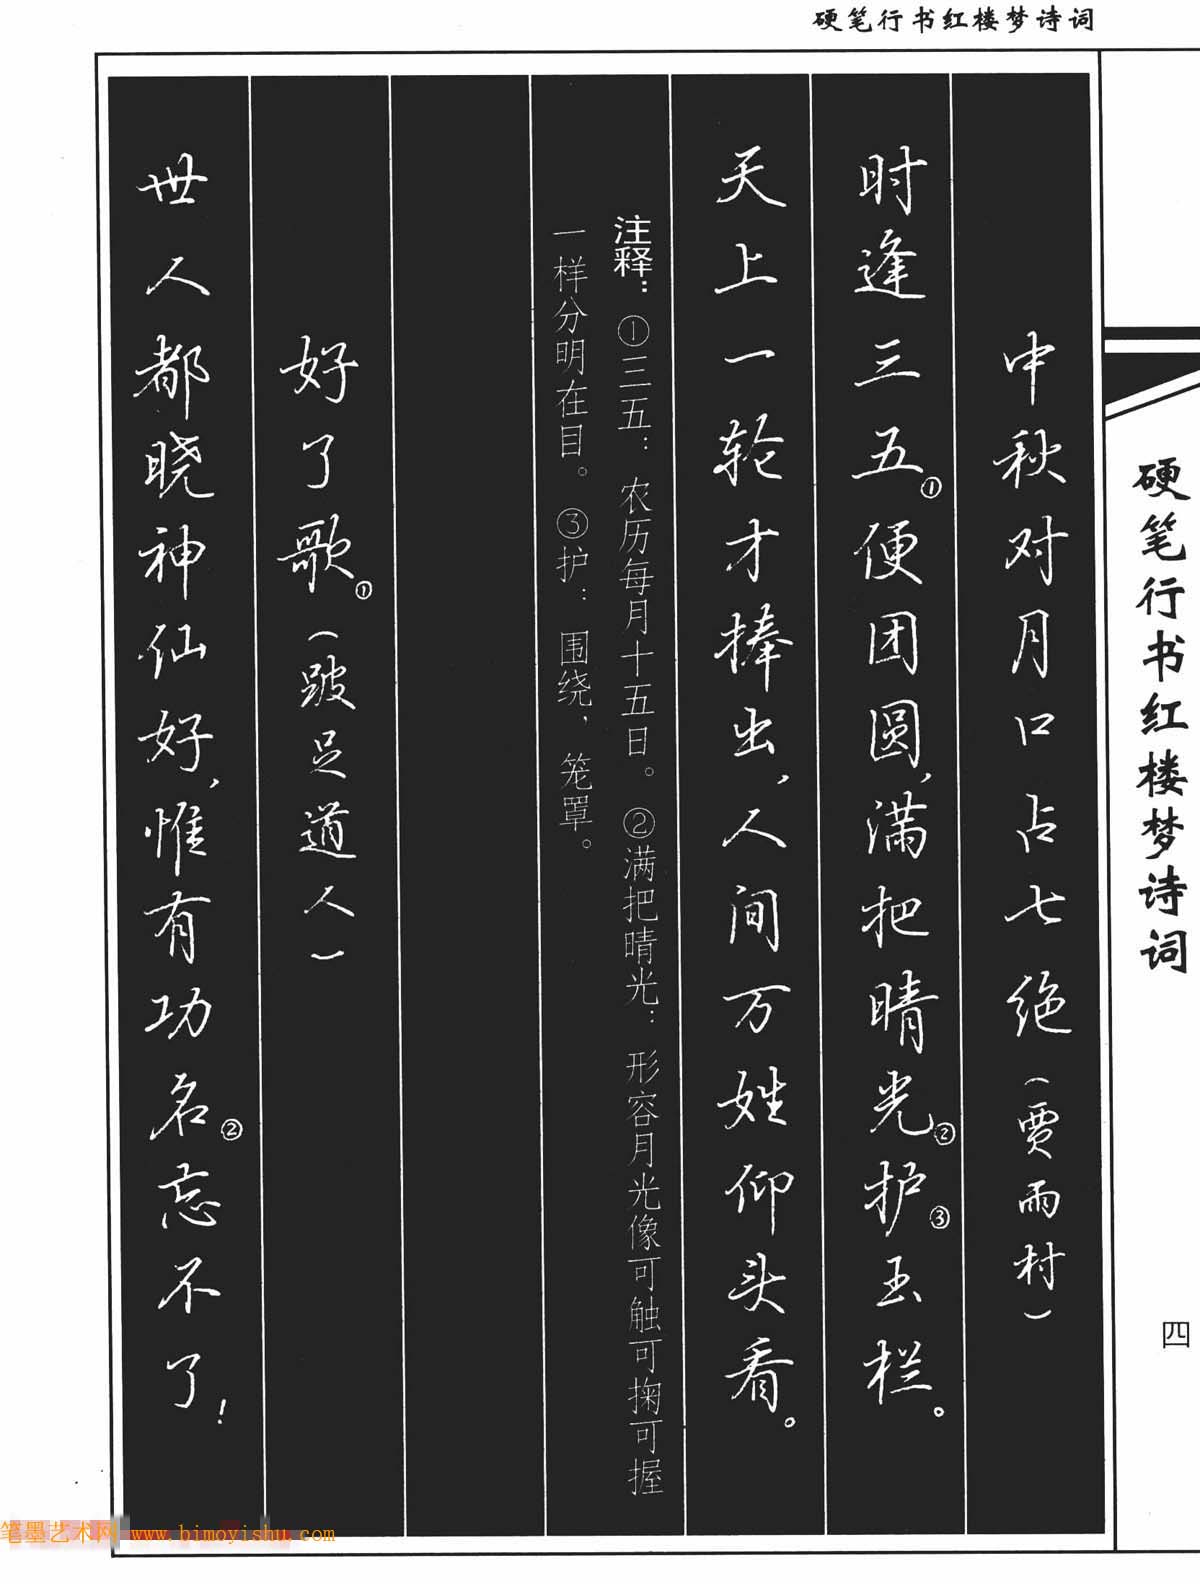 硬笔行书红楼梦诗词
硬笔行书红楼梦诗词
四
中秋对月口占七绝(贾雨村)
时逢三五①便团圆,满把晴光②护③玉栏。
天上一轮才捧出,人间万姓仰头看。
注释：①三五：农历每月十五日。②满把晴光：形容月光像可触可掬可握
一样分明在目。③护：围绕、笼罩。
好了歌①(跛足道人)
世人都晓神仙好,惟有功名②忘不了!
笔墨艺术网 www.bimoyishu.com